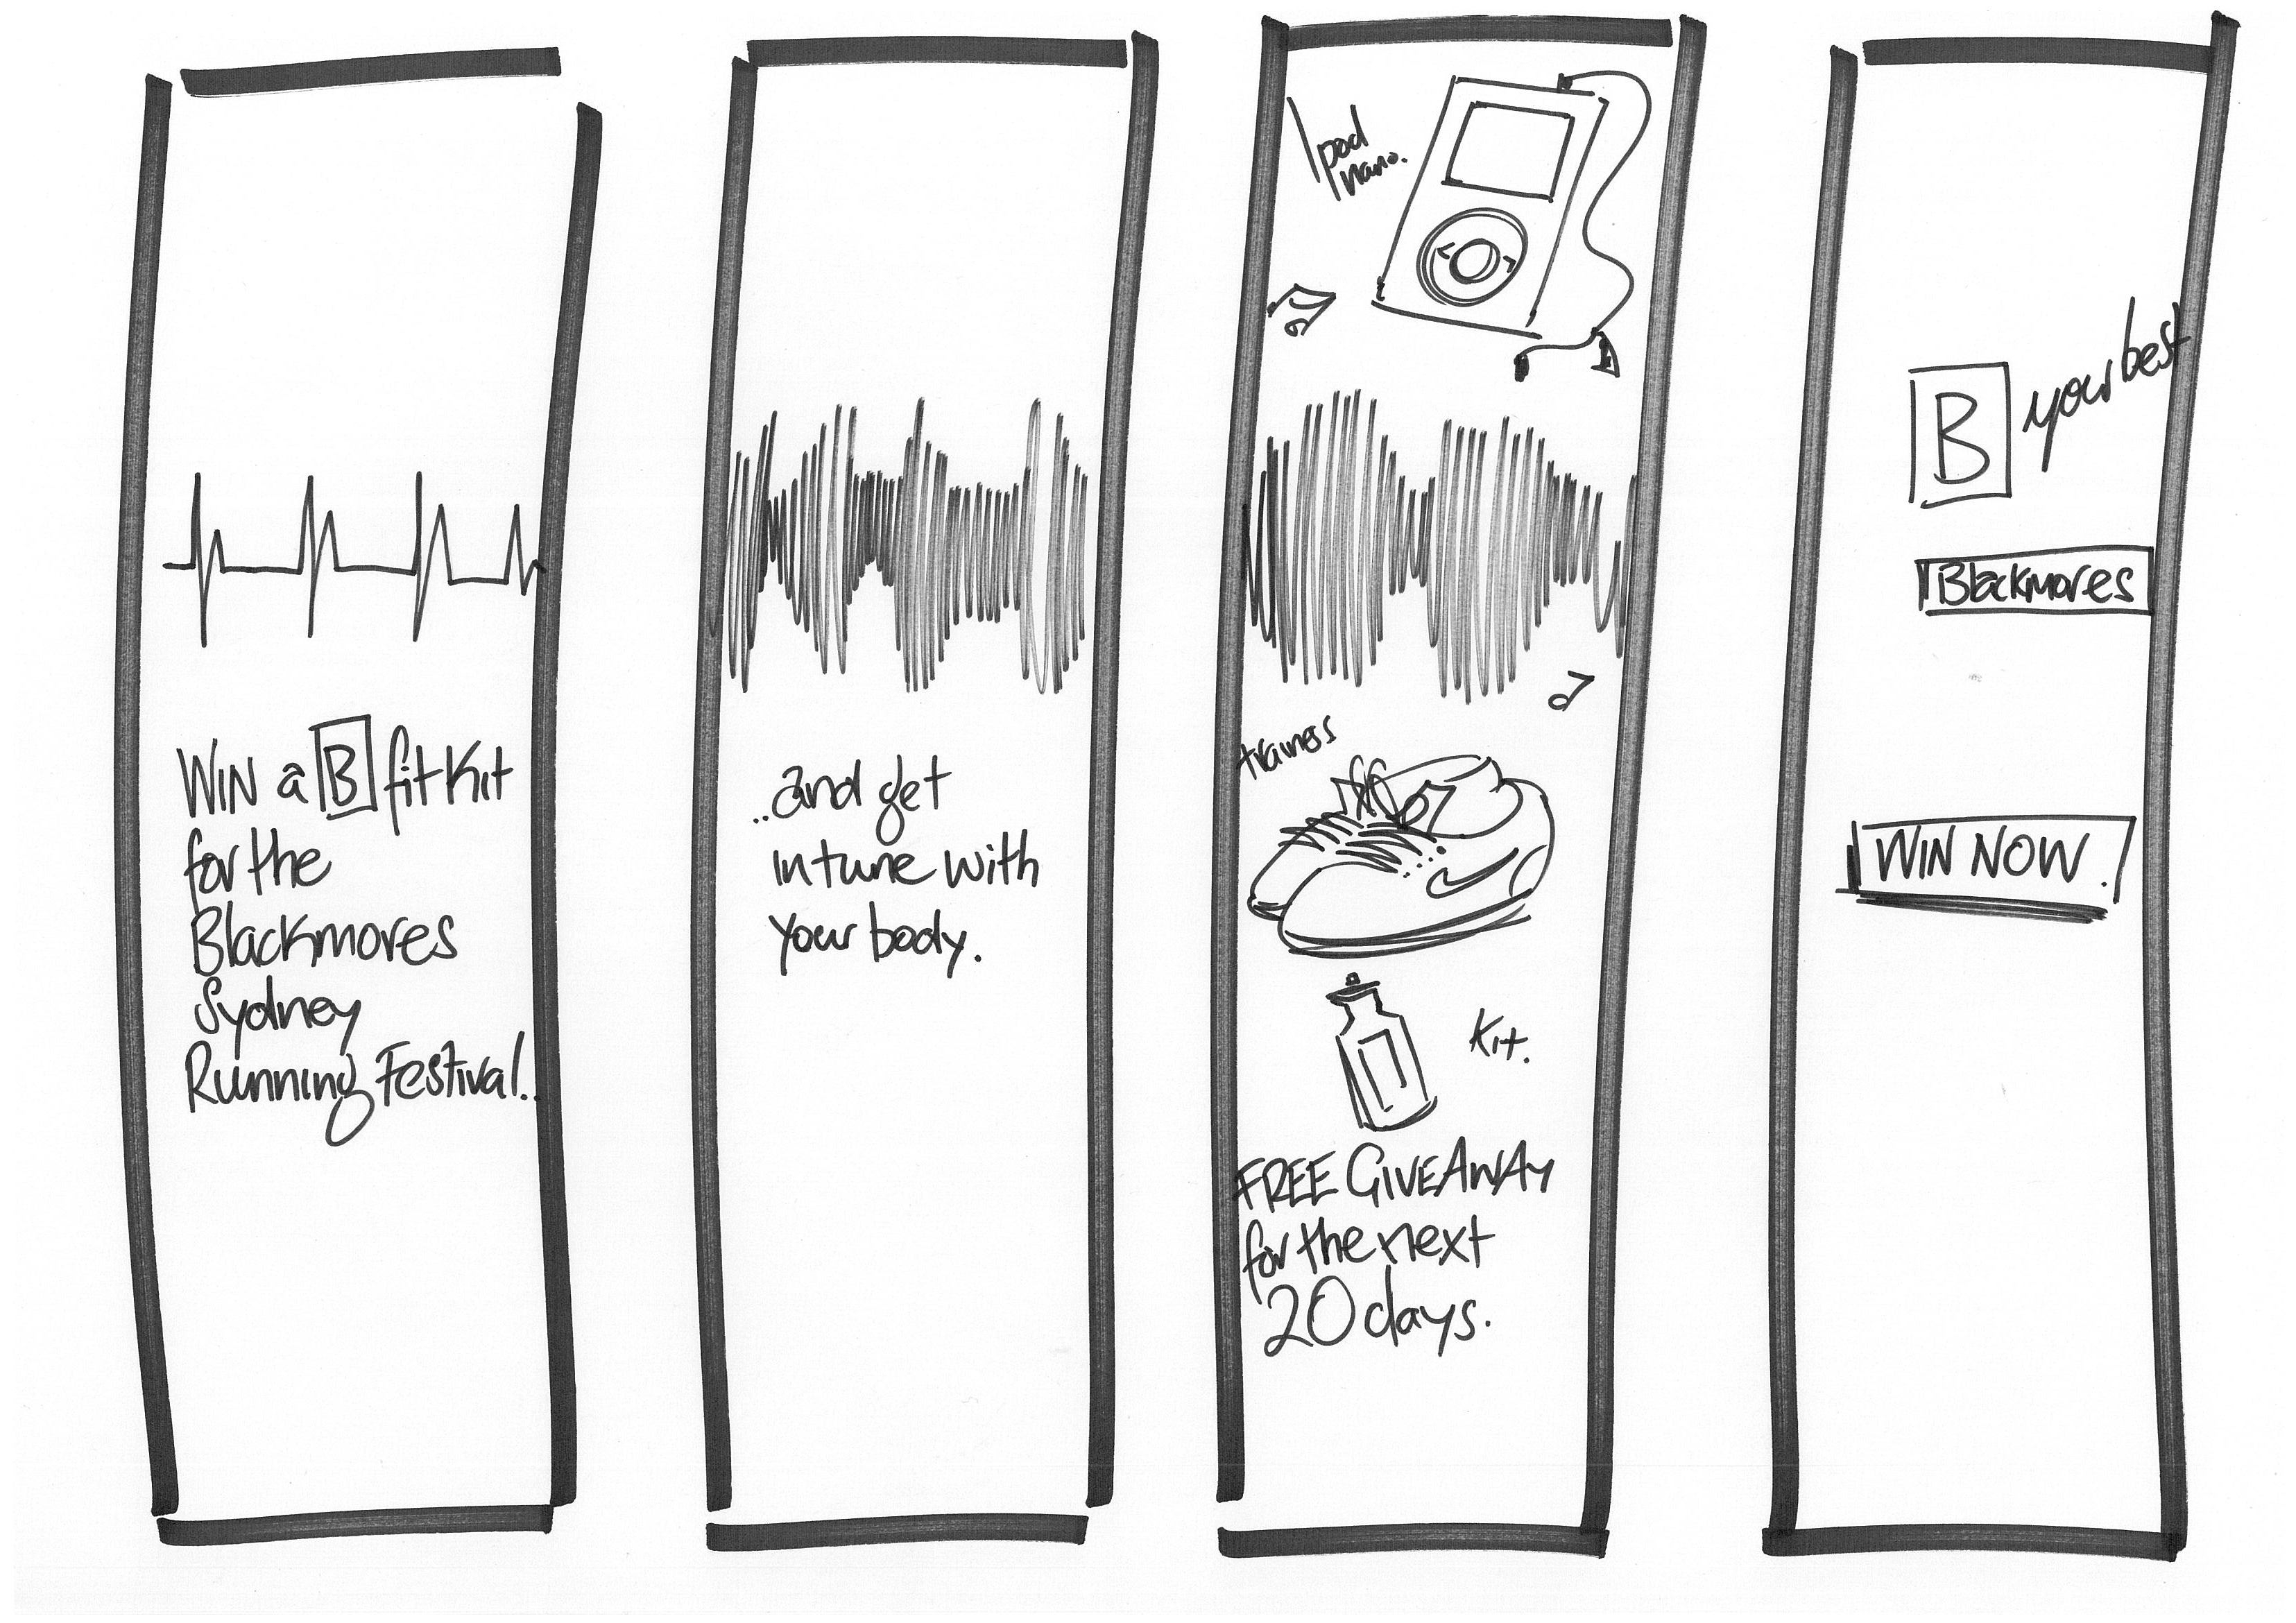 WIN a B fit Kit
for the
Blackmores
Sydney
Running Festival..
..and get
in tune with
your body.
Ipod
nano.
trainers
Kit.
FREE GIVEAWAY
for the next
20 days.
B your best
Blackmores
WIN NOW.